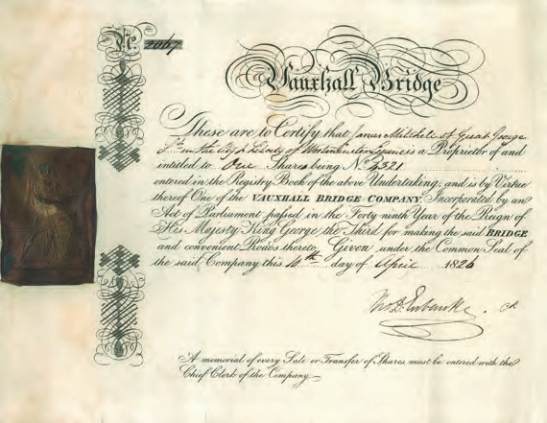 No. 2067
Vauxhall Bridge
These are to Certify that James Mitchell of Great George
St. in the City & Liberty of Westminster Esquire is a Proprietor of and
intitled to One Share being No. 4321
entered in the Registry Book of the above Undertaking; and is by Virtue
thereof One of the VAUXHALL BRIDGE COMPANY, Incorporated by an
Act of Parliament paſsed in the Forty ninth Year of the Reign of
His Majesty King George the Third for making the said BRIDGE
and convenient Rodes thereto, Given under the Common Seal of
the said Company this 10th day of April 1826
A memorial of every Sale or Transfer of Shares must be entered with the
Chief Clerk of the Company